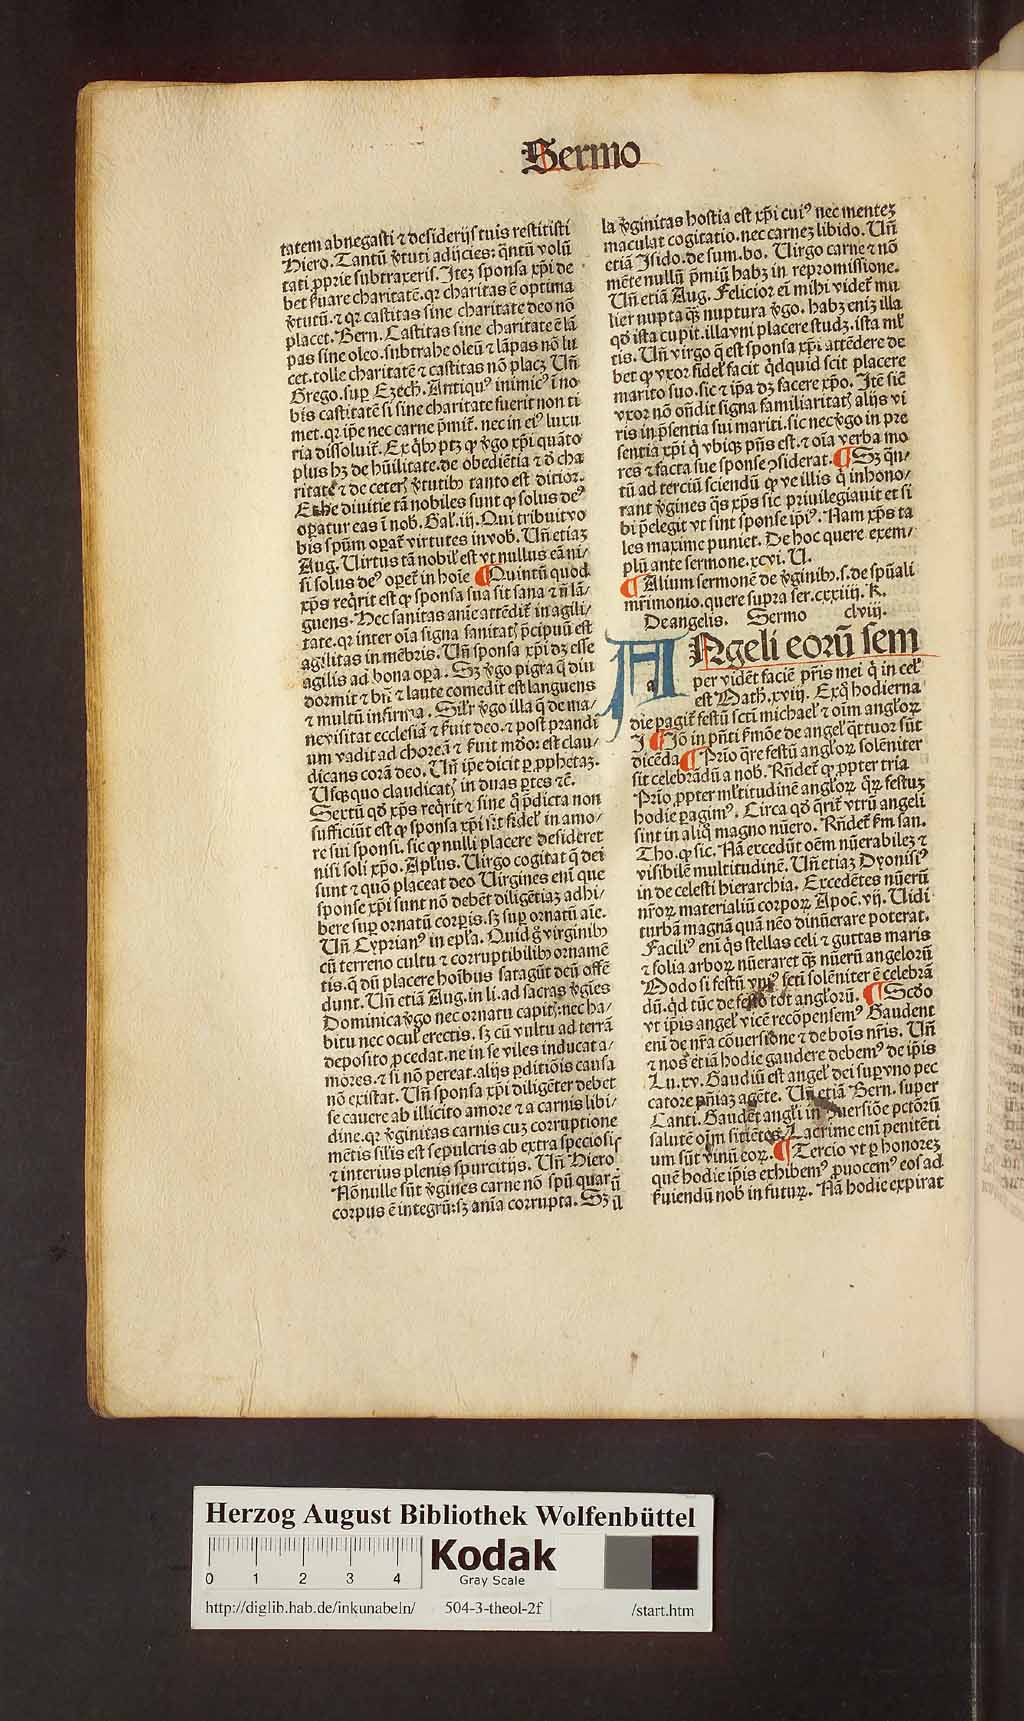 Sermo
tatem abnegasti ⁊ desiderijs tuis restitisti
Hiero. Tantū v̓tuti adijcies: q̄ntū volū
tati ꝓprie subtraxeris. Itez sponsa xp̄i de
bet s̓uare charitatē. qꝛ charitas ē optima
v̓tutū. ⁊ qꝛ castitas sine charitate deo nō
placet. Bern. Castitas sine charitate ē lā
pas sine oleo. subtrahe oleū ⁊ lāpas nō lu
cet. tolle charitatē ⁊ castitas nō placꝫ Un̄
Grego. suꝑ Ezech. Antiquꝰ inimicꝰ ī no
bis castitatē si sine charitate fuerit non ti
met. qꝛ ip̄e nec carne p̄mit̄. nec in eiꝰ luxu
ria dissoluit̄. Ex q̇bꝫ ptꝫ ꝙ v̓go xp̄i quāto
plus hꝫ de hūilitate. de obediētia ⁊ d̓ cha
ritate ⁊ de ceterꝭ v̓tutibꝫ tanto est ditior.
Et he diuitie tā nobiles sunt ꝙ solus deꝰ
oꝑatur eas ī nob. Gal̓. iij. Qui tribuit vo
bis spūm oꝑat̄ virtutes in vob. Un̄ etiaꝫ
Aug. Uirtus tā nobil̓ est vt nullus eā ni/
si solus deꝰ oꝑet̄ in hoīe ¶ Quintū quod
xp̄s reqͥrit est ꝙ sponsa sua sit sana ⁊ n̄ lā/
guens. Hec sanitas anīe attēdit̄ in agili/
tate. qꝛ inter oīa signa sanitatꝭ p̄cipuū est
agilitas in mēbris. Un̄ sponsa xp̄i dꝫ esse
agilis ad bona oꝑa. Sꝫ v̓go pigra q̄ diu
dormit ⁊ bn̄ ⁊ laute comedit est languens
⁊ multū infirma. Sil̓r v̓go illa q̄ de ma/
ne visitat ecclesiā ⁊ s̓uit deo. ⁊ post prandi
um vadit ad choreā ⁊ s̓uit mūdo: est clau/
dicans corā deo. Un̄ ip̄e dicit ꝑ ꝓphetaꝫ.
Usqꝫ quo claudicatꝭ in duas ꝑtes ⁊c̄.
Sextū qd̓ xp̄s reqͥrit ⁊ sine q̊ p̄dicta non
sufficiūt est ꝙ sponsa xp̄i sit fidel̓ in amo/
re sui sponsi. sic ꝙ nulli placere desideret
nisi soli xp̄o. Aplus. Uirgo cogitat q̄ dei
sunt ⁊ quō placeat deo Uirgines enī que
sponse xp̄i sunt nō debēt diligētiaꝫ adhi/
bere suꝑ ornatū corꝑis. sꝫ suꝑ ornatū aīe.
Un̄ Cyprianꝰ in epl̓a. Quid g̊ virginibꝫ
cū terreno cultu ⁊ corruptibilibꝫ ornamē
tis. q̄ dū placere hoībus satagūt deū offē
dunt. Un̄ etiā Aug. in li. ad sacras v̓gīes
Dominica v̓go nec ornatu capitꝭ: nec ha/
bitu nec ocul̓ erectis. sꝫ cū vultu ad terrā
deposito ꝓcedat. ne in se viles inducat a/
mores. ⁊ si nō pereat. alijs ꝑditiōis causa
nō existat. Un̄ sponsa xp̄i diligēter debet
se cauere ab illicito amore ⁊ a carnis libi/
dine. qꝛ v̓ginitas carnis cuꝫ corruptione
mētis sil̓is est sepulcris ab extra speciosis
⁊ interius plenis spurcitijs. Un̄ Hiero.
Nōnulle sūt v̓gines carne nō spū quarū
corpus ē integrū: sꝫ anīa corrupta. Sꝫ il
la v̓ginitas hostia est xp̄i cuiꝰ nec menteꝫ
maculat cogitatio. nec carneꝫ libido. Un̄
etiā Isido. de sum. bo. Uirgo carne ⁊ nō
mēte nullū p̄miū habꝫ in repromissione.
Un̄ etiā Aug. Felicior ei̅ mihi videt̄ mu
lier nupta qꝫ nuptura v̓go. habꝫ eniꝫ illa
qd̓ ista cupit. illa vni placere studꝫ. ista ml̓
tis. Un̄ virgo q̄ est sponsa xp̄i attēdere de
bet ꝙ vxor fidel̓ facit q̇dquid scit placere
marito suo. sic ⁊ ip̄a dꝫ facere xp̄o. Itē sic̄
vxor nō on̄dit signa familiaritatꝭ alijs vi
ris in p̄sentia sui mariti. sic nec v̓go in pre
sentia xp̄i q̇ vbiqꝫ p̄ns est. ⁊ oīa verba mo
res ⁊ facta sue sponse ꝯsiderat. ¶ Sꝫ q̄n/
tū ad terciū sciendū ꝙ ve illis q̇ inhono/
rant v̓gines q̄s xp̄s sic priuilegiauit et si
bi p̄elegit vt sint sponse ip̄iꝰ. Nam xp̄s ta
les maxime puniet. De hoc quere exem/
plū ante sermone. xcvi. U.
¶ Alium sermonē de v̓ginibꝫ. s. de spūali
mr̄imonio. quere supra ser. cxxiiij. K.
De angelis. Sermo clviij.
ANgeli eorū sem
per vidēt faciē pr̄is mei q̇ in cel̓
est Math. xviij. Ex q̊ hodierna
die pagit̄ festū scti michael̓ ⁊ oīm angl̓oꝝ
I ¶ Iō in p̄nti s̓mōe de angel̓ q̄ttuor sūt
dicēda ¶ Prīo q̄re festū angl̓oꝝ solēniter
sit celebrādū a nob. Rn̄det̄ ꝙ ꝓpter tria
Prīo ꝓpter ml̓titudinē angl̓oꝝ qͦꝝ festuꝫ
hodie ꝑagimꝰ. Circa qd̓ q̄rit̄ vtrū angeli
sint in aliq̊ magno nūero. Rn̄det̄ s̓m san.
Tho. ꝙ sic. Nā excedūt oēm nūerabileꝫ ⁊
visibilē multitudinē. Un̄ etiaꝫ Dyonisiꝰ
in de celesti hierarchia. Excedētes nūerū
nr̄oꝝ materialiū corpoꝝ Apoc. vij. Uidi
turbā magnā quā nēo dinūerare poterat.
Faciliꝰ enī q̇s stellas celi ⁊ guttas maris
⁊ folia arboꝝ nūeraret qꝫ nūerū angelorū
Modo si festū vniꝰ scti solēniter ē celebrā
dū. qd̓ tūc de festo tot angl̓orū. ¶ Scd̓o
vt ip̄is angel̓ vicē recōpensemꝰ Gaudent
enī de nr̄a cōuersione ⁊ de bois nr̄is. Un̄
⁊ nos etiā hodie gaudere debemꝰ de ip̄is
Lu. xv. Gaudiū est angel̓ dei suꝑ vno pec
catore pn̄iaꝫ agēte. Un̄ etiā Bern. super
Canti. Gaudēt angl̓i in ꝯuersiōe pctōrū
salutē oīm sitiētes. Lacrime enī penitēti
um sūt vinū eoꝝ. ¶ Tercio vt ꝑ honoreꝫ
quē hodie ip̄is exhibemꝰ ꝓuocemꝰ eos ad
s̓uiendū nob in futuꝝ. Nā hodie expirat
Herzog August Bibliothek Wolfenbüttel
0 1 2 3 4
Kodak
Gray Scale
http://diglib.hab.de/inkunabeln/ 504-3-theol-2f /start.htm